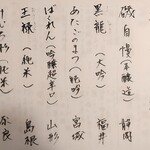 磯自慢（本醸造）静岡
黒龍（大吟）福井
あたごのまつ（純吟）宮城
ばくれん（吟醸超辛口）山形
王祿（純米）島根
（純米）奈良